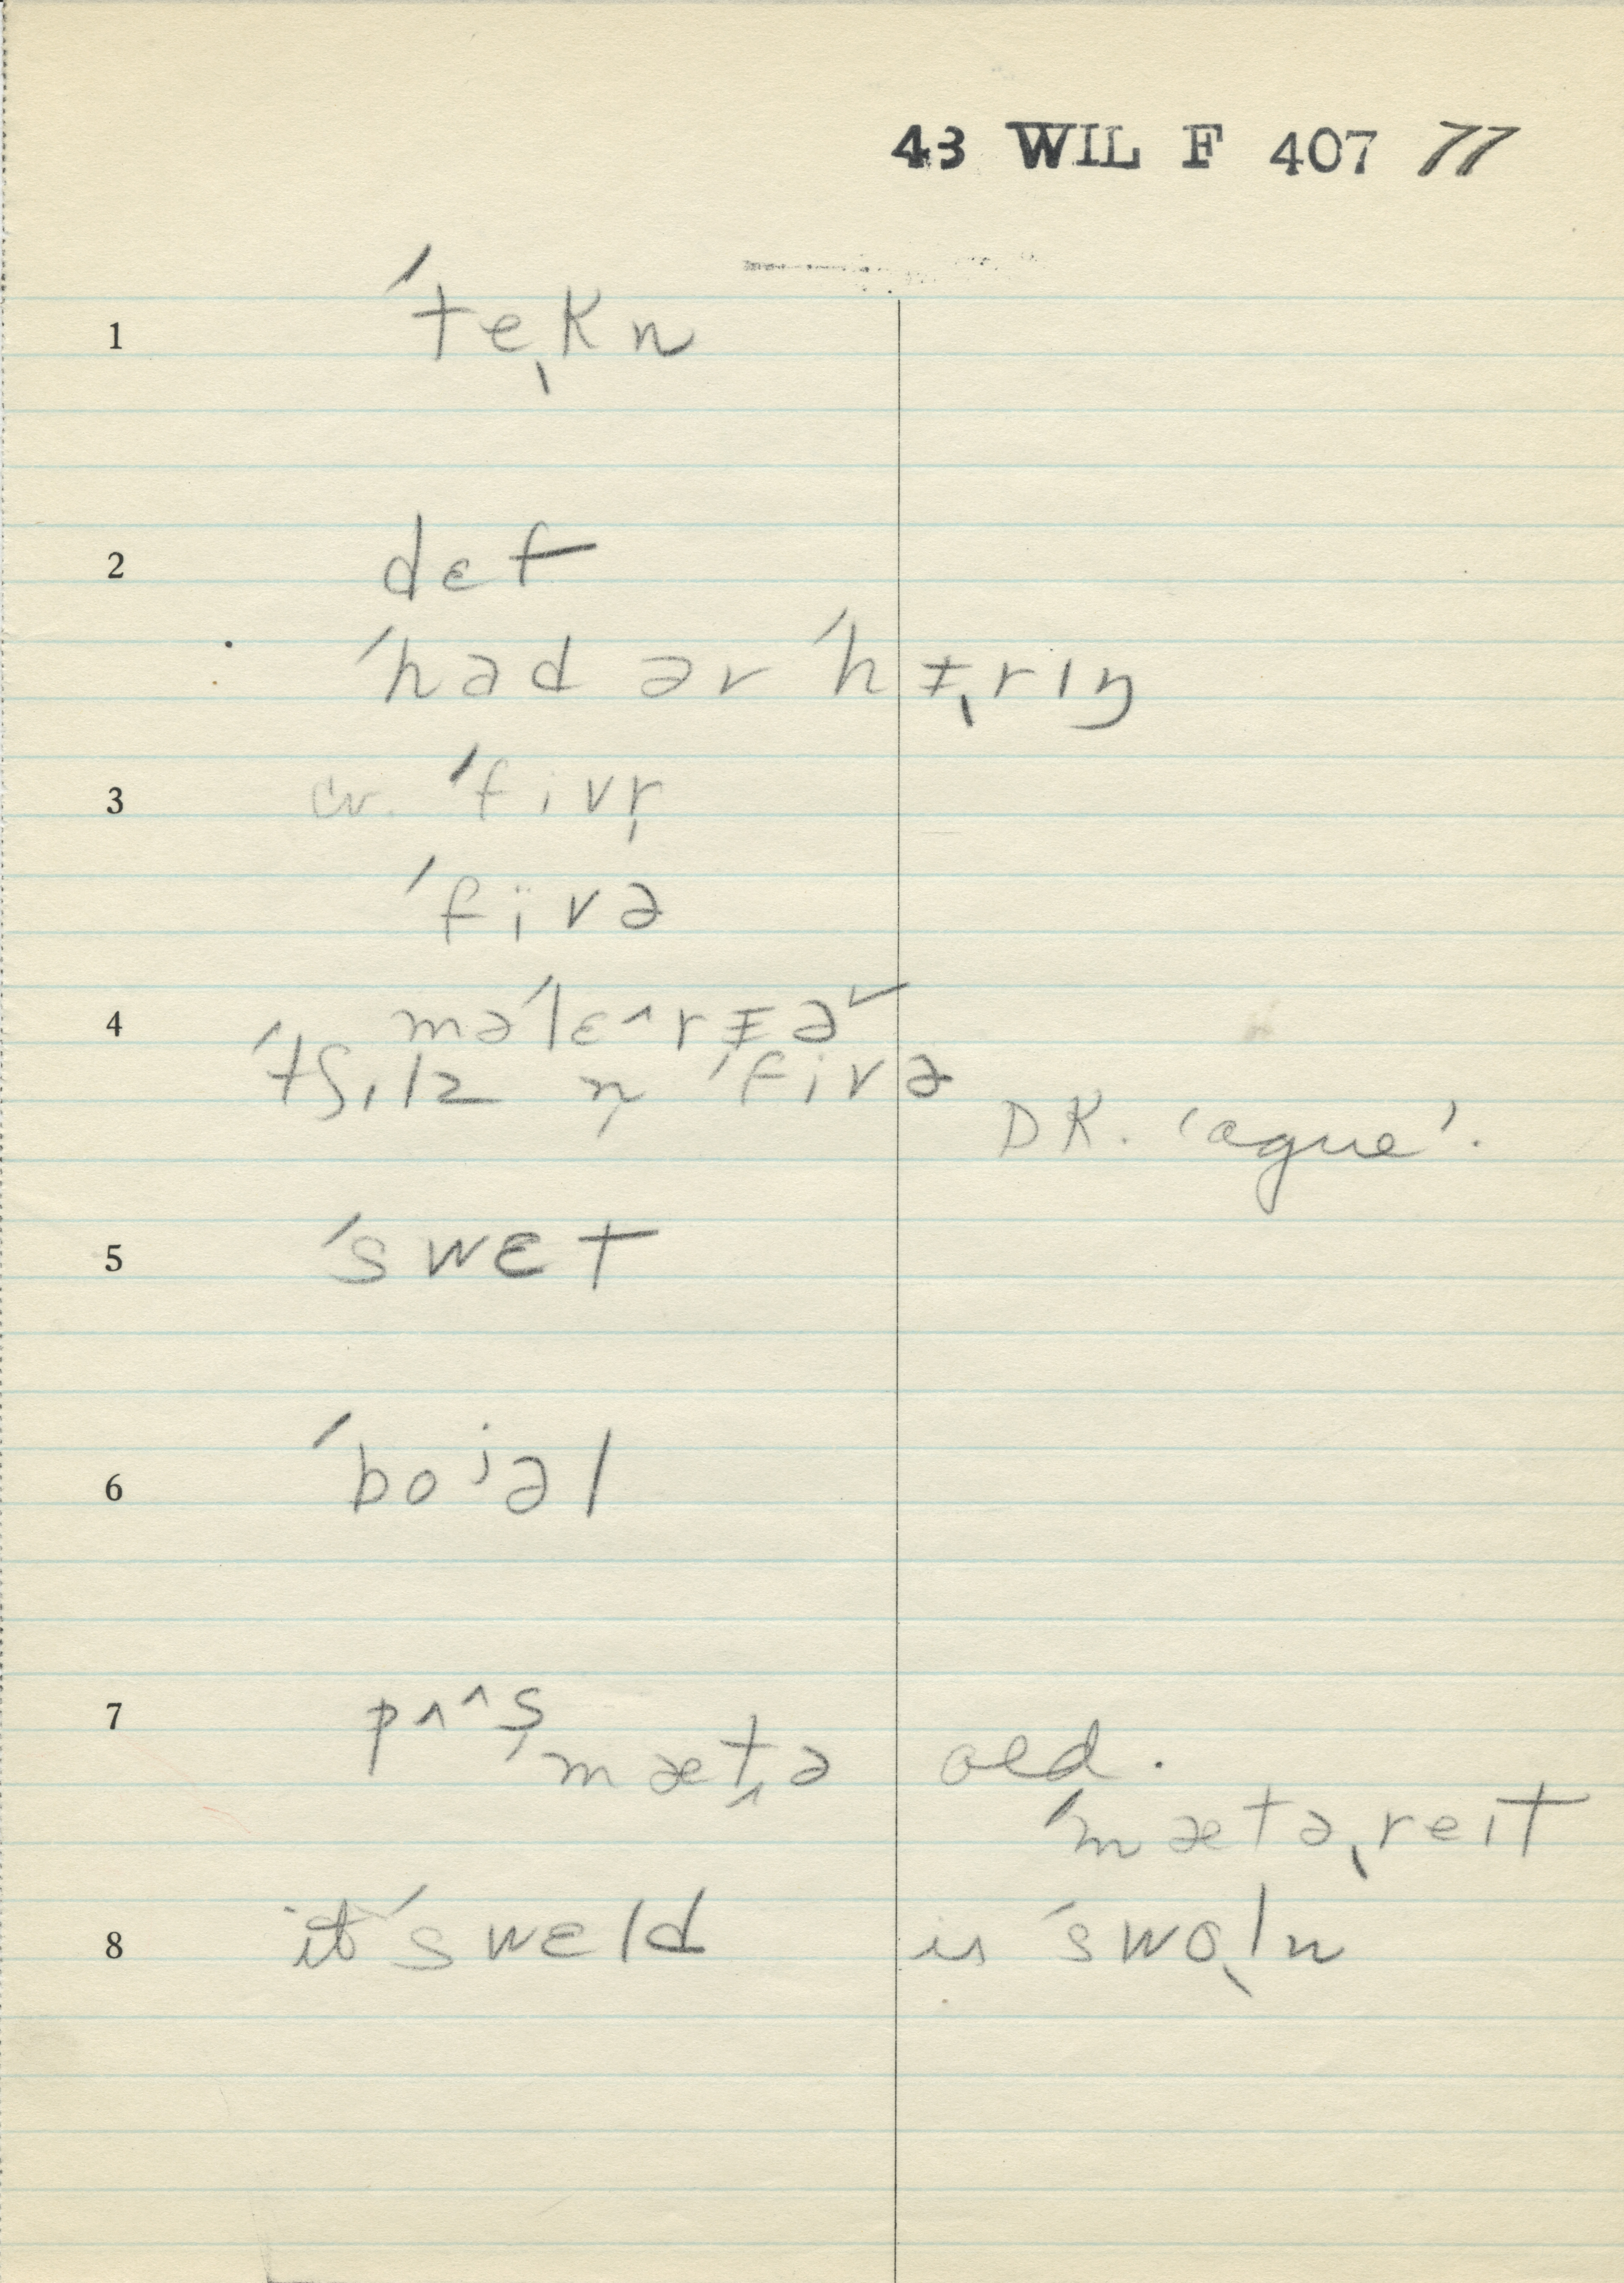 43 WIL F 407 77
1 ˈteˎkn
2 dɛf
ˈhad əv ˈhɪˎrɪŋ
3 cv. ˈfivr̩
ˈfïvə
4 məˈlɛ^rɪə˅
ˈtʃɪlz n̩ ˈfivə
DK. 'ague'.
5 ˈswɛt
6 ˈboʲəl
7 pʌ^s̩
mætˬə old.
ˈmætəˎreɪt
8 it ˈswɛld is ˈswoˎln